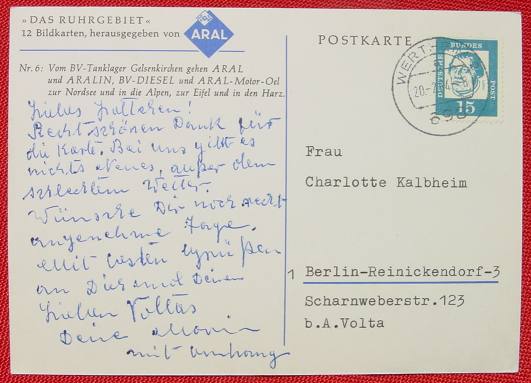 »DAS RUHRGEBIET«
12 Bildkarten, herausgegeben von
ARAL
Nr. 6: Vom BV-Tanklager Gelsenkirchen gehen ARAL
und ARALIN, BV-DIESEL und ARAL-Motor-Oel
zur Nordsee und in die Alpen, zur Eifel und in den Harz.
Liebes
Recht schönen Dank für
die Karte. Bei uns gibt es
nichts Neues, außer dem
schlechten Wetter.
Wünsche Dir noch recht
angenehme Tage.
Mit besten Grüßen
an Dich und Deine
lieben Voltas
Deine
mit Anhang
POSTKARTE
WERT
20.
698
DEUTSCHE BUNDESPOST
15
Frau
Charlotte Kalbheim
1 Berlin-Reinickendorf-3
Scharnweberstr.123
b.A.Volta